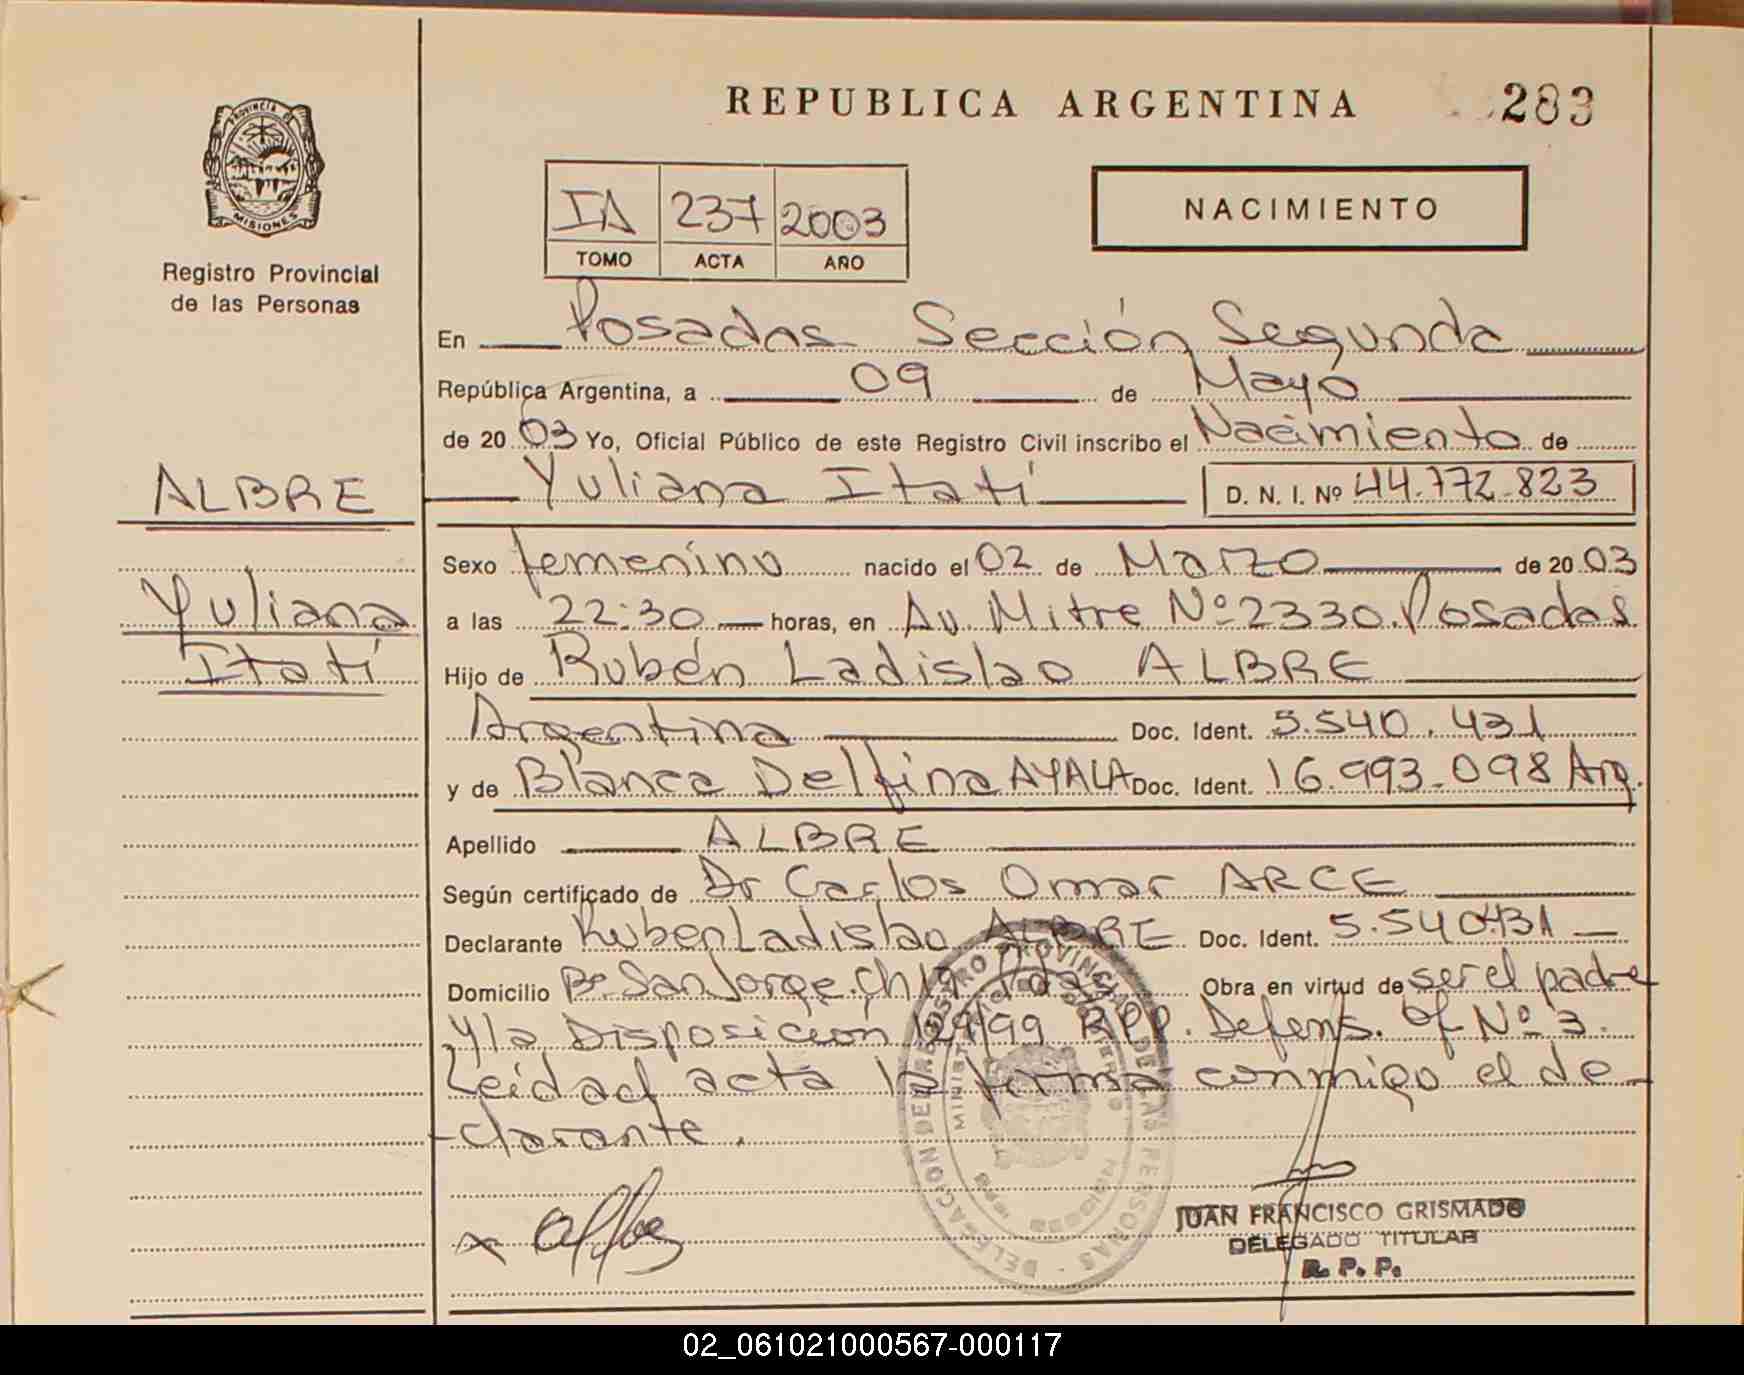 REPUBLICA ARGENTINA
283
PROVINCIA DE
MISIONES
Registro Provincial
de las Personas
IA 237 2003
TOMO ACTA AÑO
NACIMIENTO
En Posadas Sección Segunda
República Argentina, a 09 de Mayo
de 2003 Yo, Oficial Público de este Registro Civil inscribo el Nacimiento de
Yuliana Itatí D. N. I. Nº 44.772.823
ALBRE
Yuliana
Itatí
Sexo femenino nacido el 02 de Marzo de 2003
a las 22:30 horas, en Av. Mitre Nº 2330. Posadas
Hijo de Rubén Ladislao ALBRE
Argentina Doc. Ident. 5.540.431
y de Blanca Delfina AYALA Doc. Ident. 16.993.098 Arg.
Apellido ALBRE
Según certificado de Dr Carlos Omar ARCE
Declarante Ruben Ladislao ALBRE Doc. Ident. 5.540.431
Domicilio Bº San Jorge. Ch Pdas Obra en virtud de ser el padre
y la Disposición 129/99 RPP. Defens. Of Nº 3.
Leida el acta la firma conmigo el de-
-clarante.
JUAN FRANCISCO GRISMADO
DELEGADO TITULAR
R. P. P.
DELEGACION DEL REGISTRO PROVINCIAL DE LAS PERSONAS
MINISTERIO DE GOBIERNO
02_061021000567-000117